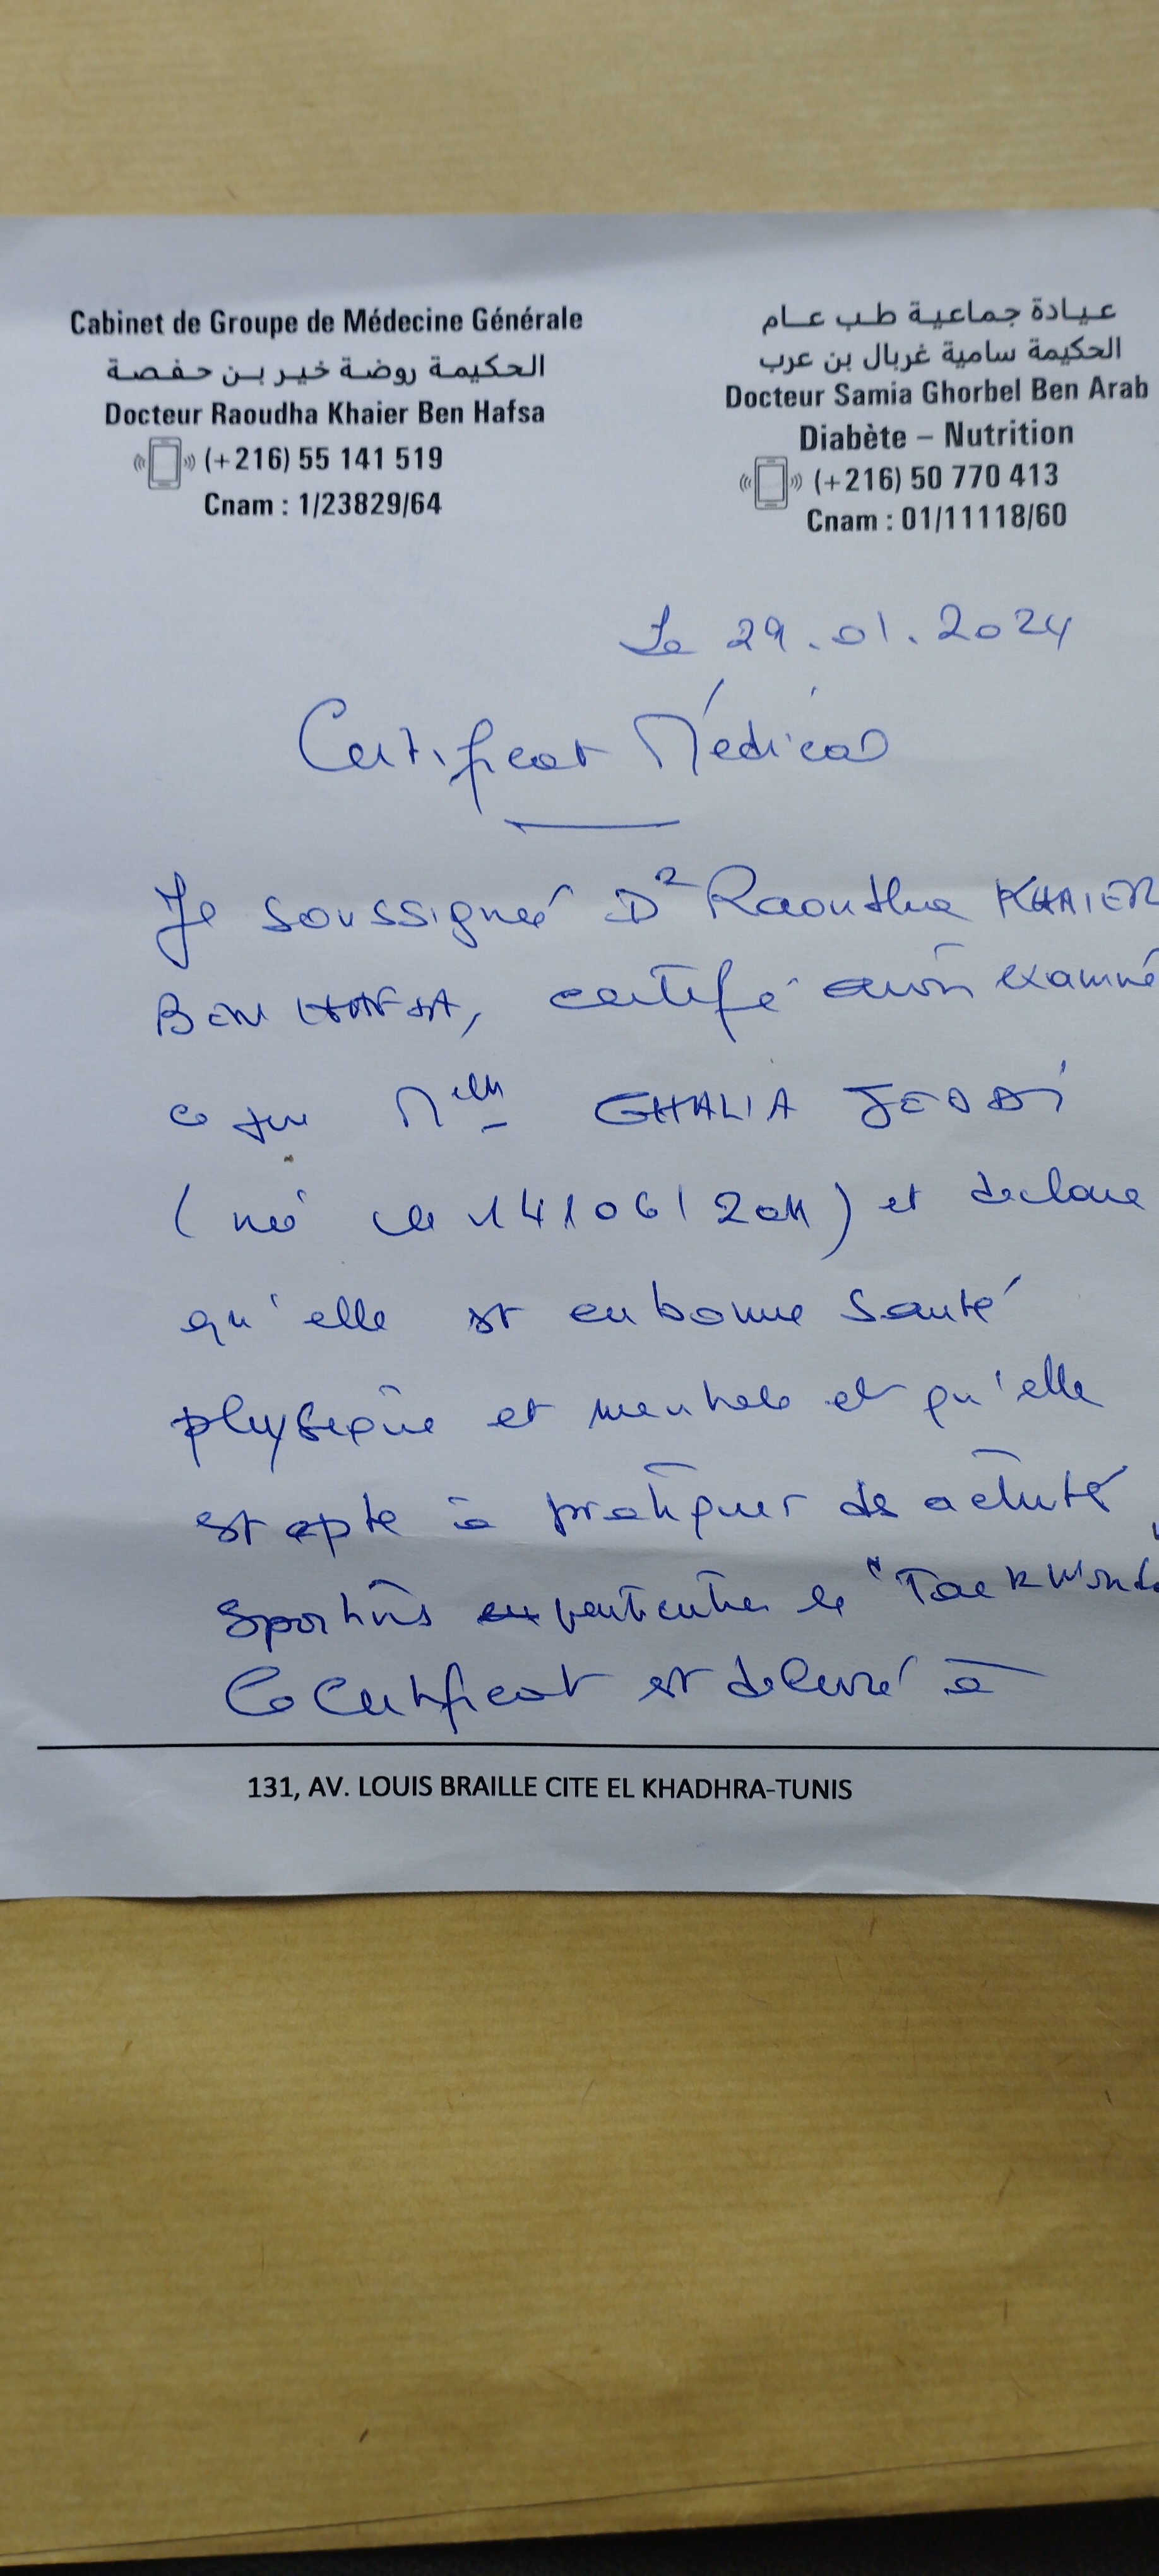 Cabinet de Groupe de Médecine Générale
الحكيمة روضة خير بن حفصة
Docteur Raoudha Khaier Ben Hafsa
(+216) 55 141 519
Cnam : 1/23829/64
عيادة جماعية طب عام
الحكيمة سامية غربال بن عرب
Docteur Samia Ghorbel Ben Arab
Diabète – Nutrition
(+216) 50 770 413
Cnam : 01/11118/60
Le 29.01.2024
Certificat Médical
Je soussigné Dr Raoudha KHAIER
BEN HAFSA, certifie avoir examiné
ce jour Melle GHALIA
(née le 14/06/2011) et declare
qu'elle est en bonne santé
physique et mentale et qu'elle
est apte à pratiquer des activités
sportives en particulier le "Taekwondo
Ce Certificat est delivré à
131, AV. LOUIS BRAILLE CITE EL KHADHRA-TUNIS